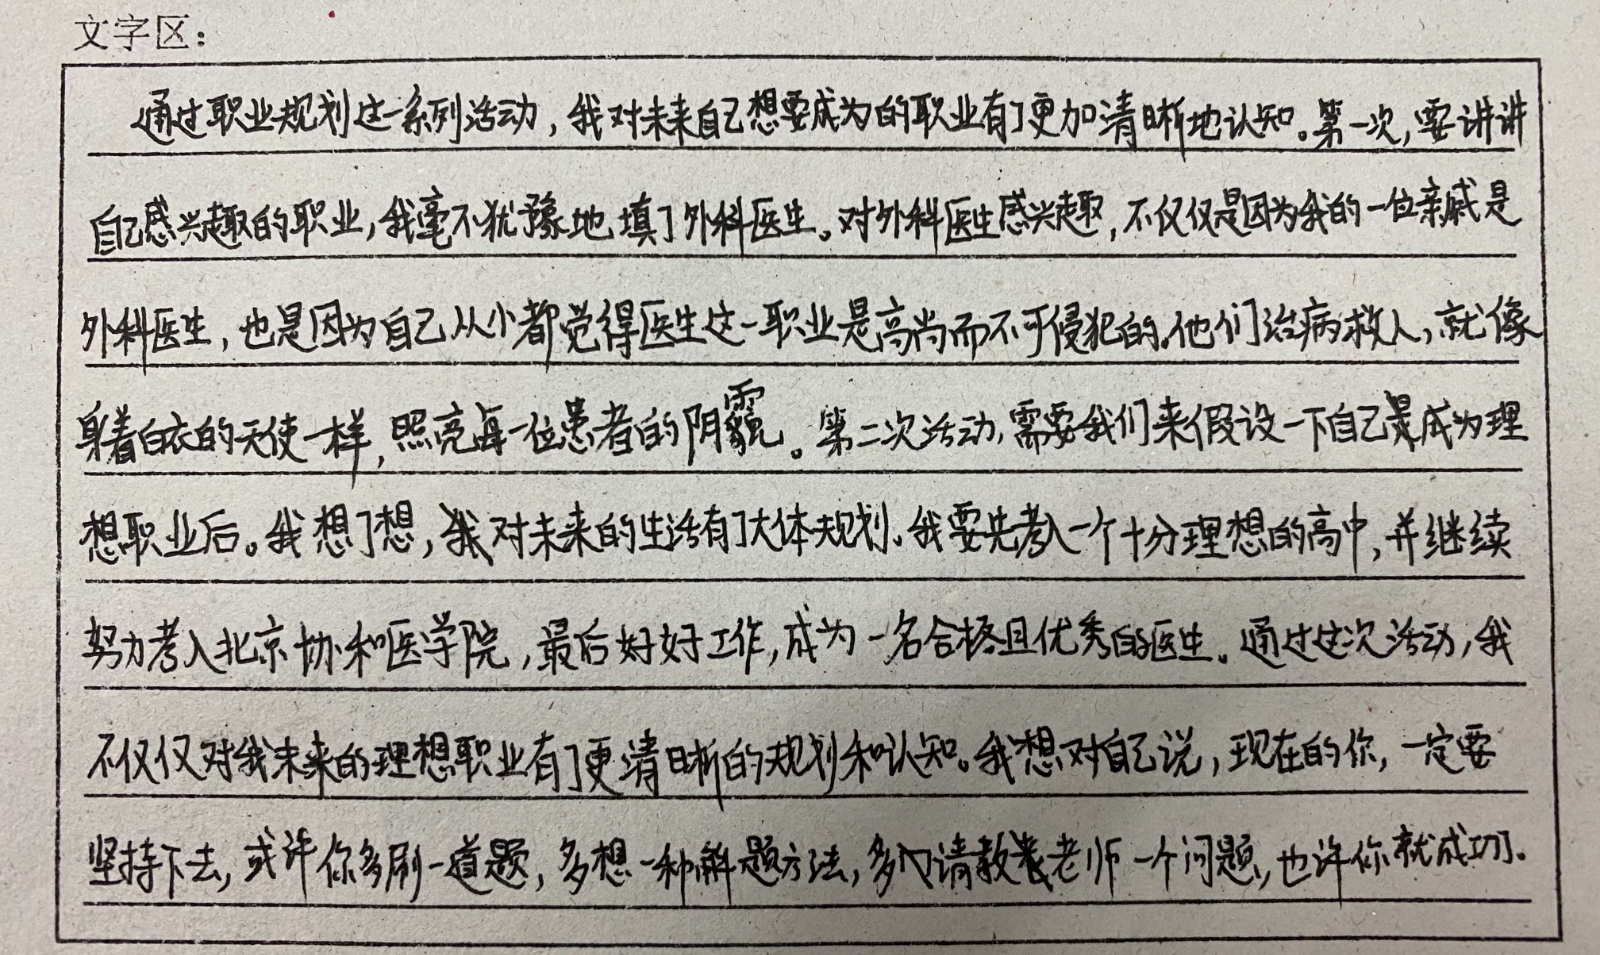 文字区：
通过职业规划这一系列活动，我对未来自己想要成为的职业有了更加清晰地认知。第一次，要讲讲
自己感兴趣的职业，我毫不犹豫地填了外科医生。对外科医生感兴趣，不仅仅是因为我的一位亲戚是
外科医生，也是因为自己从小都觉得医生这一职业是高尚而不可侵犯的。他们治病救人，就像
身着白衣的天使一样，照亮每一位患者的阴霾。第二次活动，需要我们来假设一下自己成为理
想职业后。我想了想，我对未来的生活有了大体规划。我要先考入一个十分理想的高中，并继续
努力考入北京协和医学院，最后好好工作，成为一名合格且优秀的医生。通过这次活动，我
不仅仅对我未来的理想职业有了更清晰的规划和认知。我想对自己说，现在的你，一定要
坚持下去，或许你多刷一道题，多想一种解题方法，多请教老师一个问题，也许你就成功了。